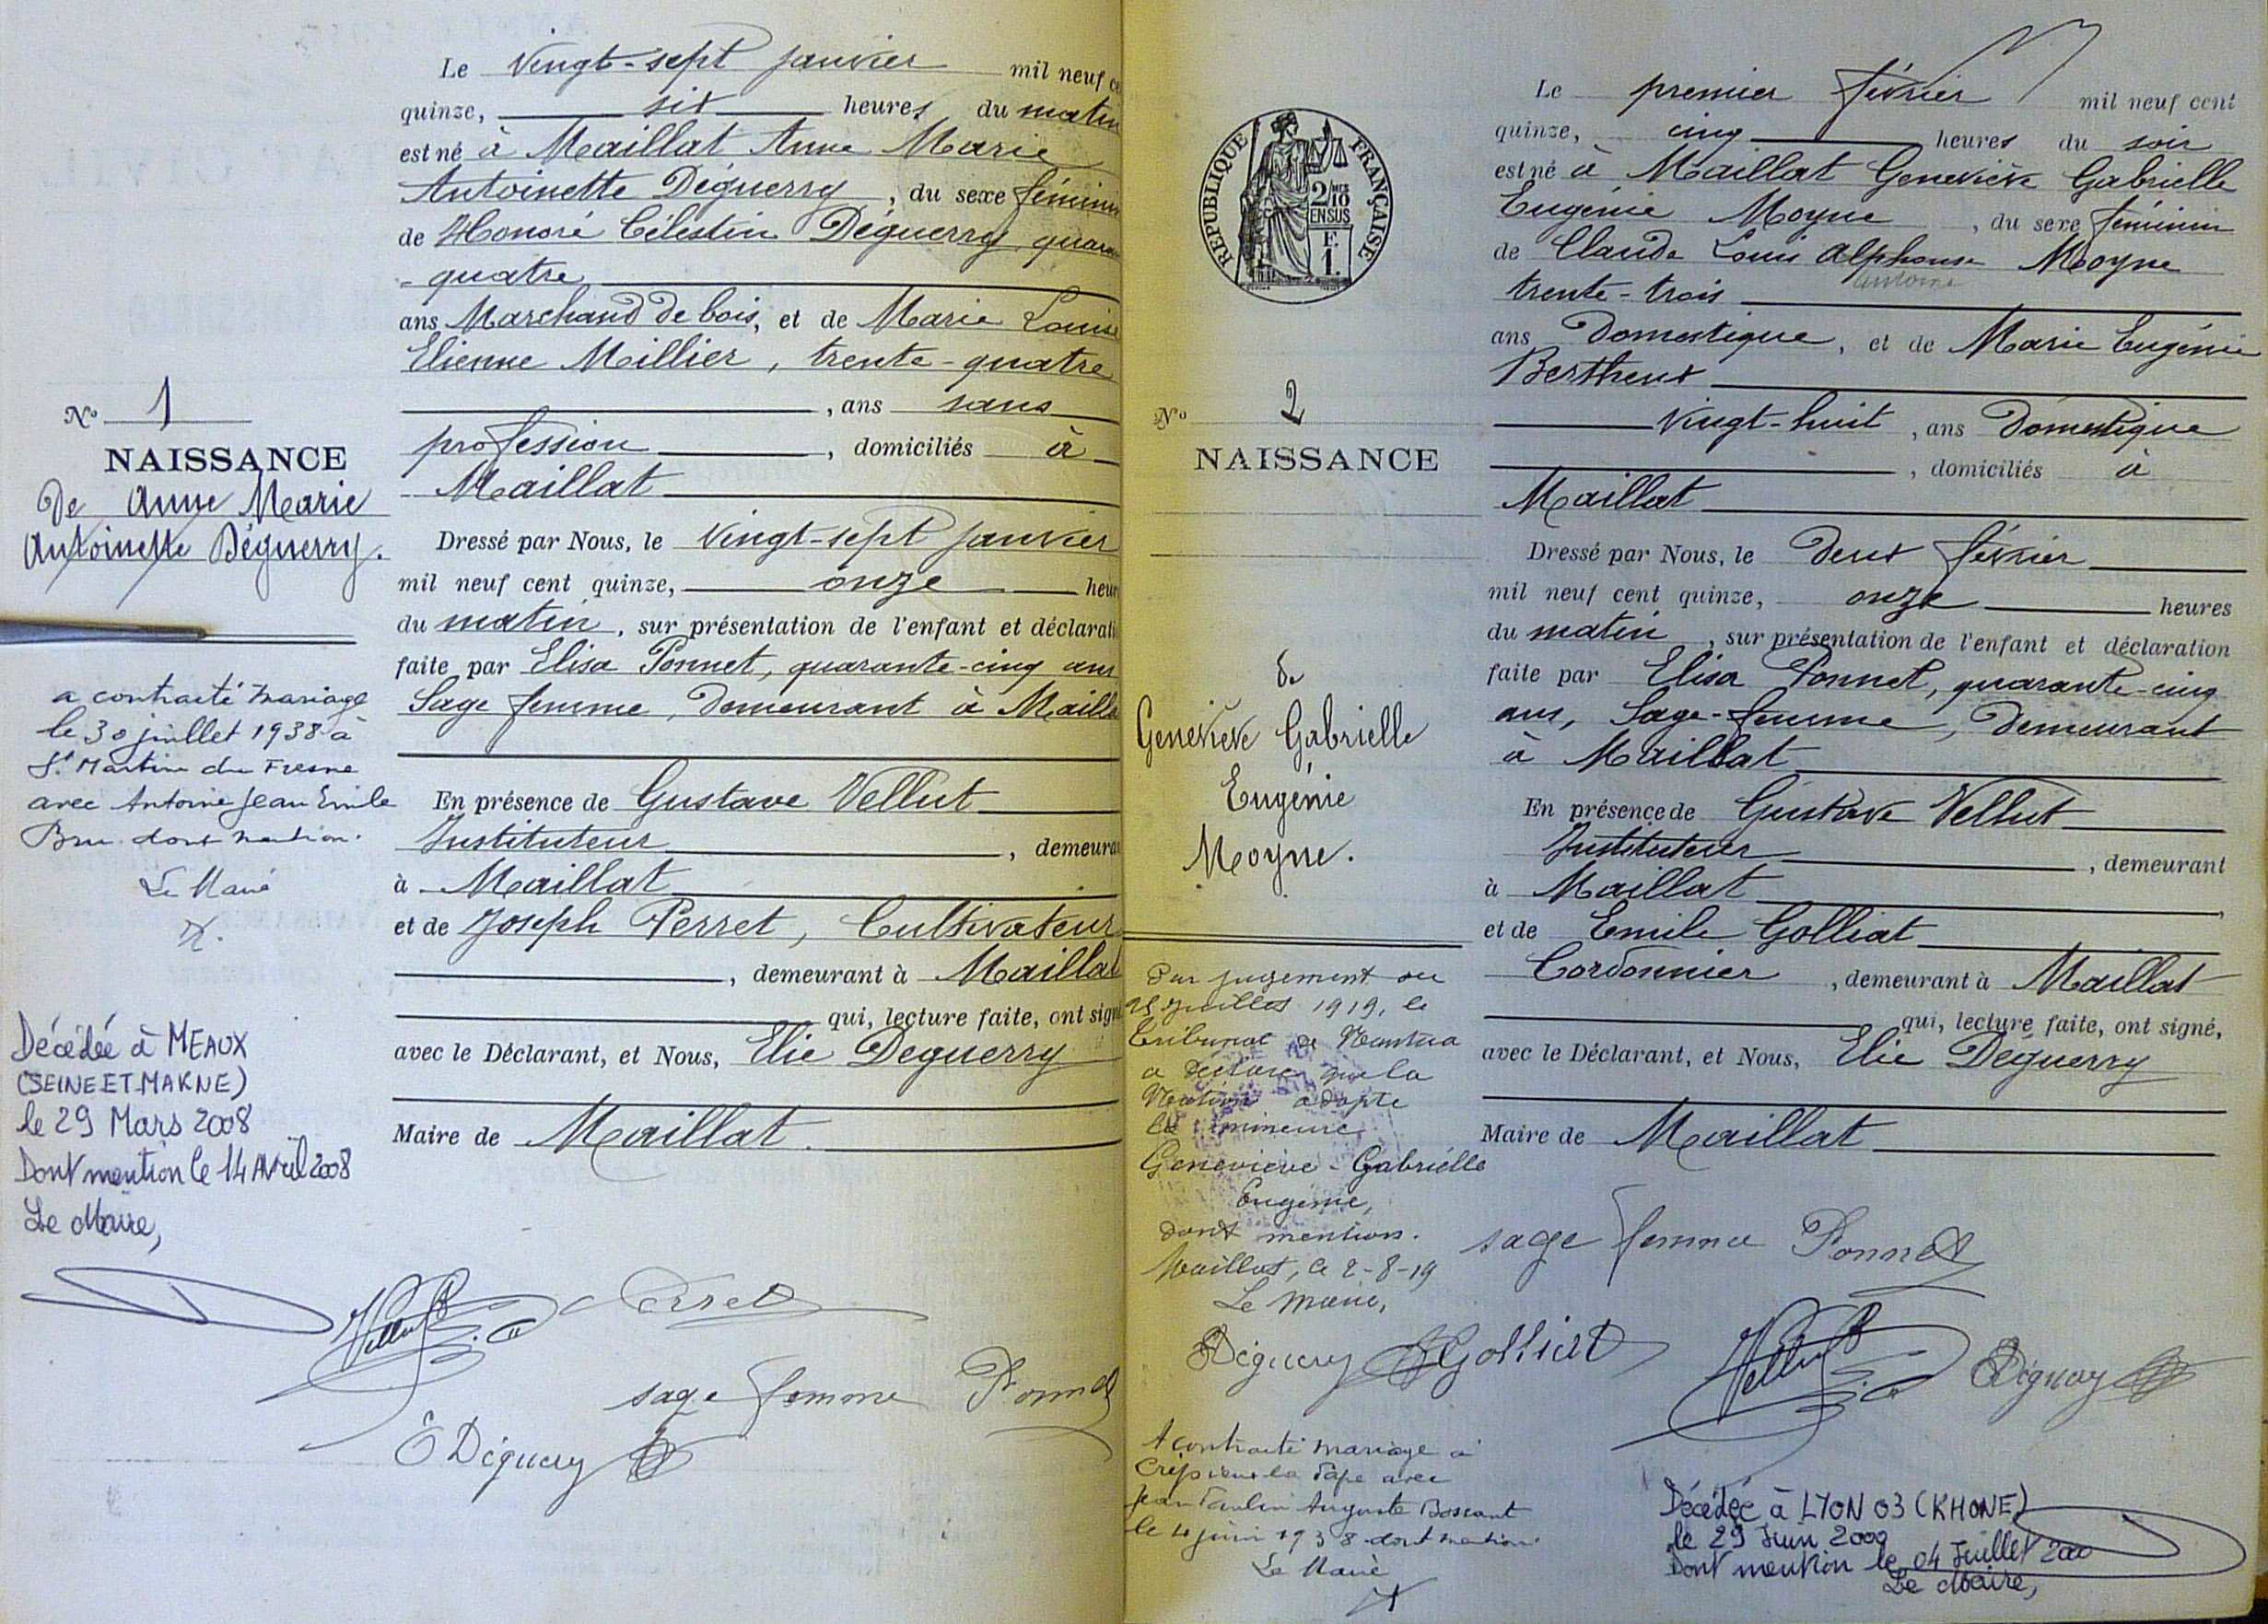 Le vingt-sept janvier mil neuf ce
quinze, six heures du matin
est né à Maillat Anne Marie
Antoinette Déguerry, du sexe féminin
de Honoré Célestin Déguerry quaran
-quatre
ans Marchand de bois, et de Marie Louise
Etienne Millier, trente-quatre
, ans sans
profession, domiciliés à
Maillat
Dressé par Nous, le vingt-sept janvier
mil neuf cent quinze, onze heur
du matin, sur présentation de l'enfant et déclarati
faite par Elisa Ponnet, quarante-cinq ans
Sage femme, demeurant à Mailla
En présence de Gustave Vellut
Instituteur, demeura
à Maillat
et de Joseph Perret, Cultivateur
, demeurant à Maillat
qui, lecture faite, ont sign
avec le Déclarant, et Nous, Elie Deguerry
Maire de Maillat.
No 1
NAISSANCE
De Anne Marie
Antoinette Déguerry.
a contracté mariage
le 30 juillet 1938 à
St Martin du Fresne
avec Antoine Jean Emile
Bru dont mention.
Le Maire
Décédée à MEAUX
(SEINE ET MARNE)
le 29 Mars 2008
Dont mention le 14 Avril 2008
Le Maire,
Vellut Perret
sage femme Ponnet
E Déguerry
REPUBLIQUE FRANÇAISE
2/10
EN SUS
F.
1.
No 2
NAISSANCE
de
Geneviève Gabrielle
Eugénie
Moyne.
Par jugement du
25 juillet 1919, le
Tribunal de Nantua
a déclaré que la
Nation adopte
la mineure
Geneviève-Gabrielle
Eugénie,
dont mention.
Maillat, le 2-8-19
Le maire,
Déguerry
A contracté mariage à
Crépieux la Pape avec
Jean Paulin Auguste
le 4 juin 1938 dont mention.
Le Maire
Le premier février mil neuf cent
quinze, cinq heures du soir
est né à Maillat Geneviève Gabrielle
Eugénie Moyne, du sexe féminin
de Claude Louis Alphonse Moyne
antoine
trente-trois
ans Domestique, et de Marie Eugénie
Bertheux
vingt-huit, ans Domestique
, domiciliés à
Maillat
Dressé par Nous, le deux février
mil neuf cent quinze, onze heures
du matin, sur présentation de l'enfant et déclaration
faite par Elisa Ponnet, quarante-cinq
ans, Sage-femme, demeurant
à Maillat
En présence de Gustave Vellut
Instituteur, demeurant
à Maillat,
et de Emile Golliat
Cordonnier, demeurant à Maillat
qui, lecture faite, ont signé,
avec le Déclarant, et Nous, Elie Déguerry
Maire de Maillat
sage femme Ponnet
E Golliat Vellut E Déguerry
Décédée à LYON 03 (RHONE)
le 29 Juin 2000
Dont mention le 04 Juillet 2000
Le Maire,